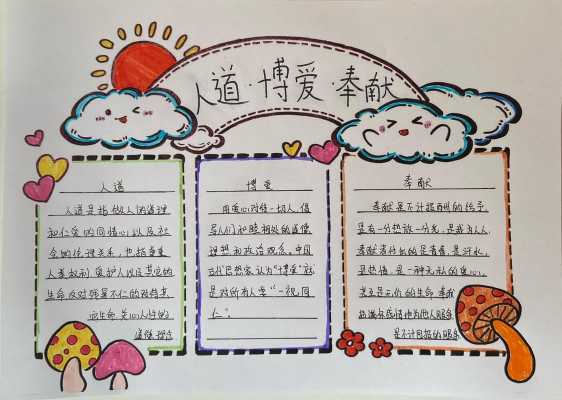 人道·博爱·奉献
人道
人道是指做人的道理
和仁爱的同情心以及社
会的伦理关系,也指尊重
人类权利,爱护人以及其它的
生命反对强暴不仁的对待其
它生命,关心人性的
道德理念
博爱
用爱心对待一切人,倡
导人们和睦相处的道德
理想和政治观念。中国
古代思想家认为"博爱"就
是对所有人要"一视同
仁"。
奉献
奉献是不计报酬的给予,
是有一分热放一分光,是我为人人
奉献者付出的是青春,是汗水,
是热情,是一种无私的爱心,
甚至是无价的生命,奉献
的满怀感情地为他人服务
是不计回报的服务